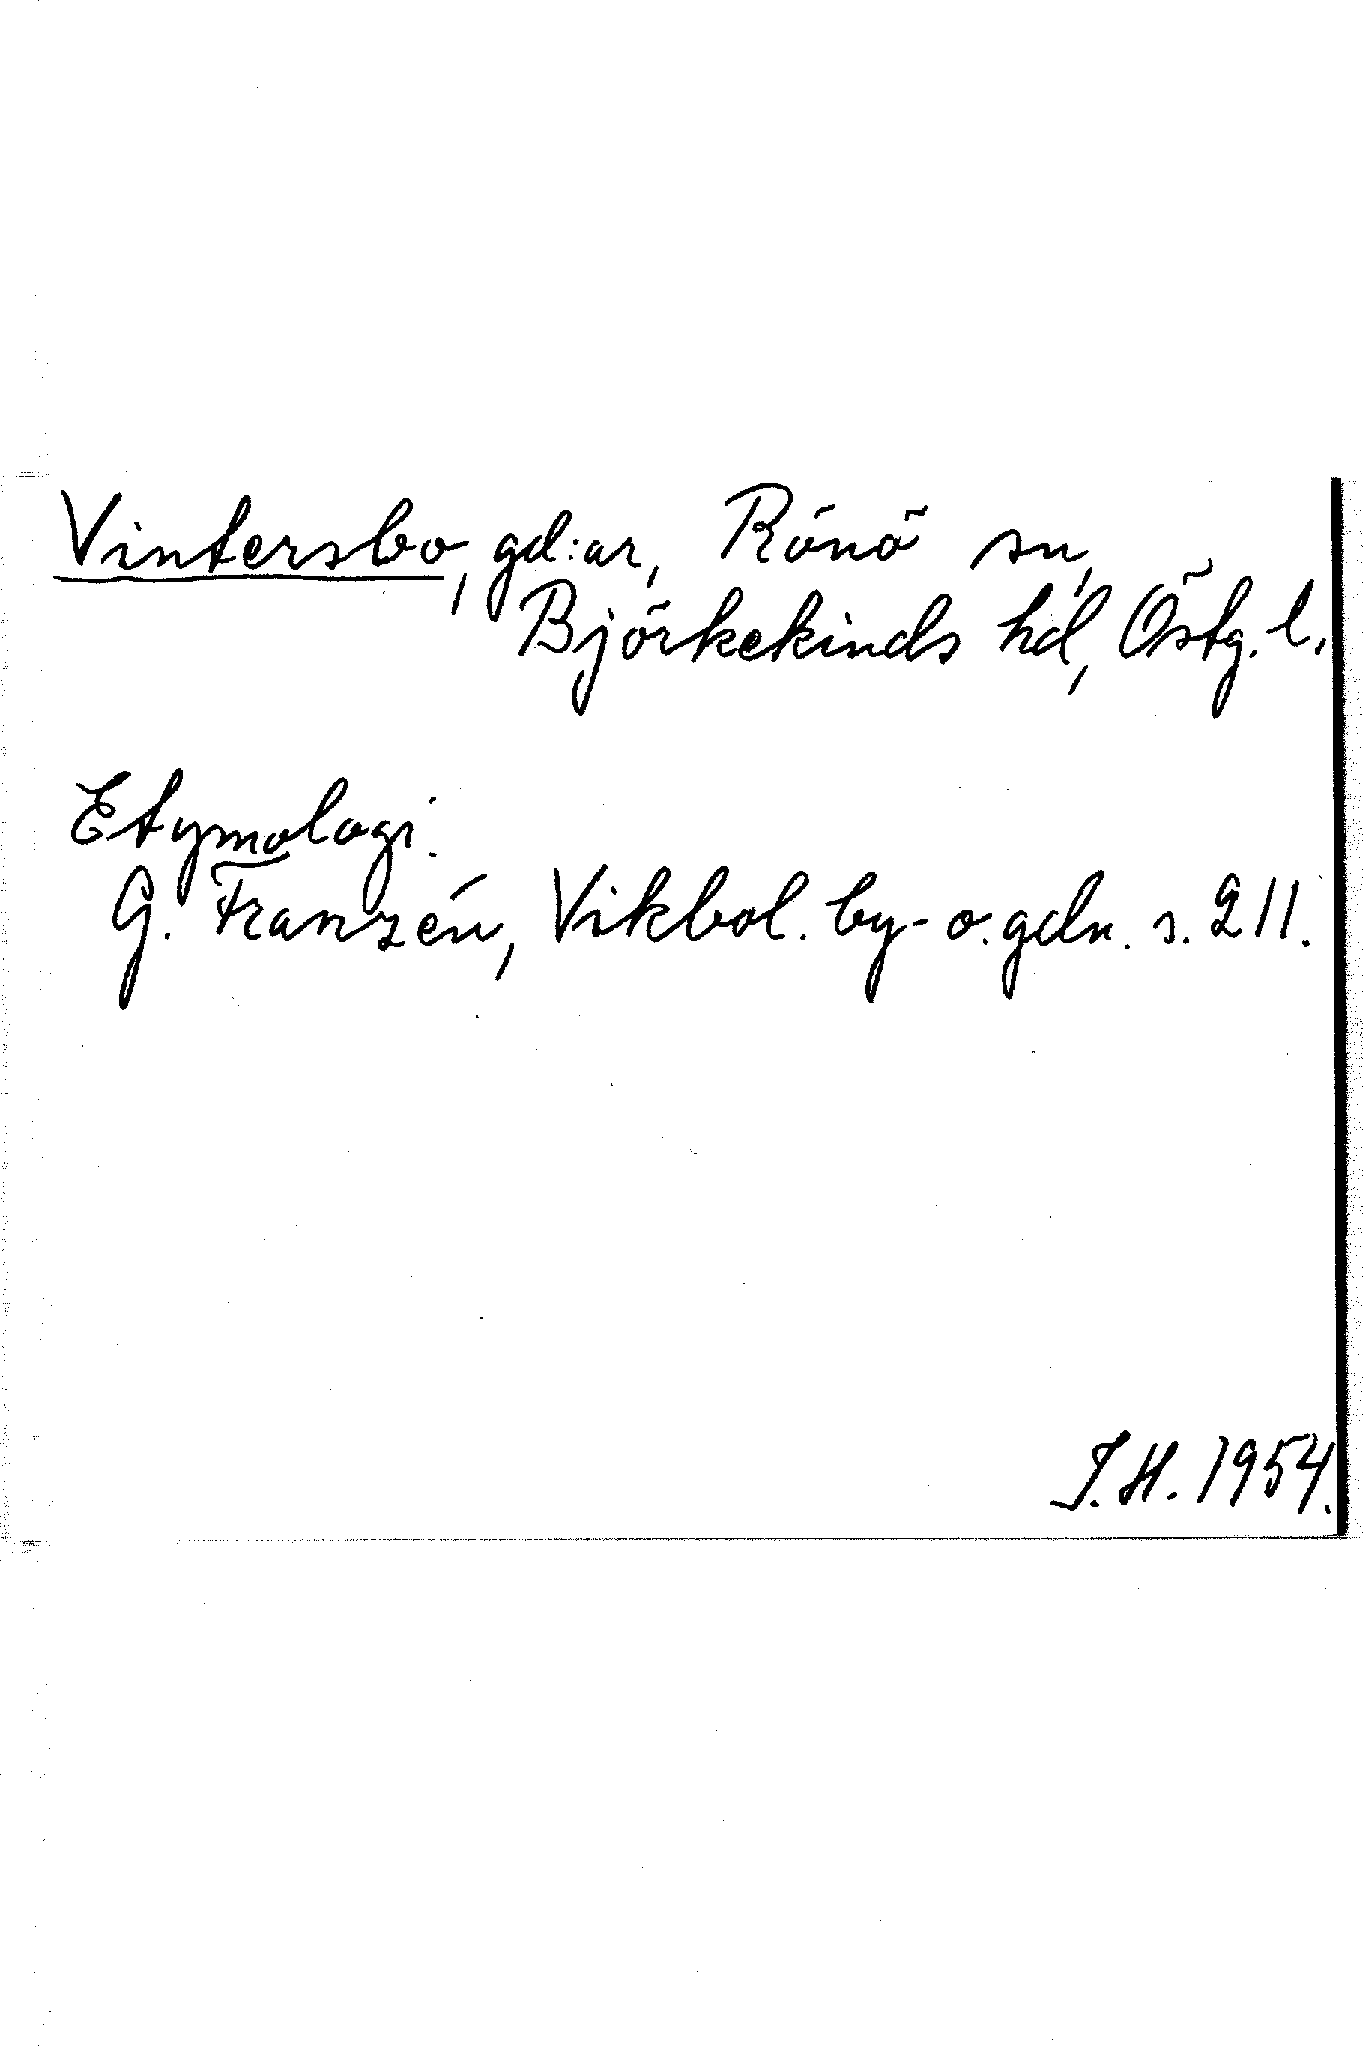 Vintersbo, gd:ar, Rönö sn,
Björkekinds hd, Östg. l.
Etymologi:
G. Franzén, Vikbol. by- o. gdn. s. 211.
I.H. 1954.